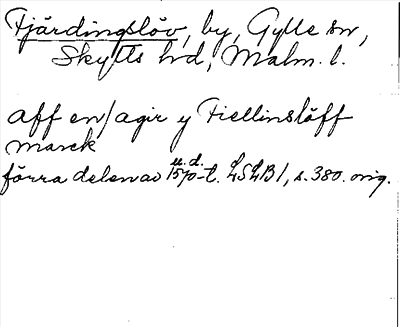 Fjärdingslöv, by, Gylle sn,
Skytts hd, Malm. l.
aff en agir y Fiellinslöff
marck
u.d.
förra delen av 1570-t. LSLB 1, s. 380. orig.